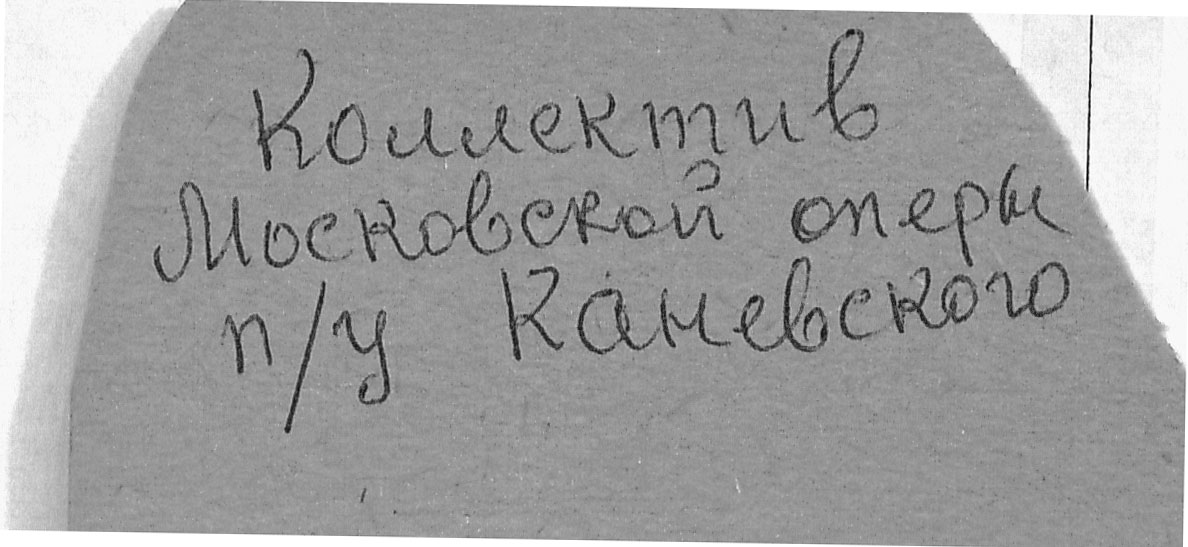 Коллектив
Московской оперы
п/у Каневского